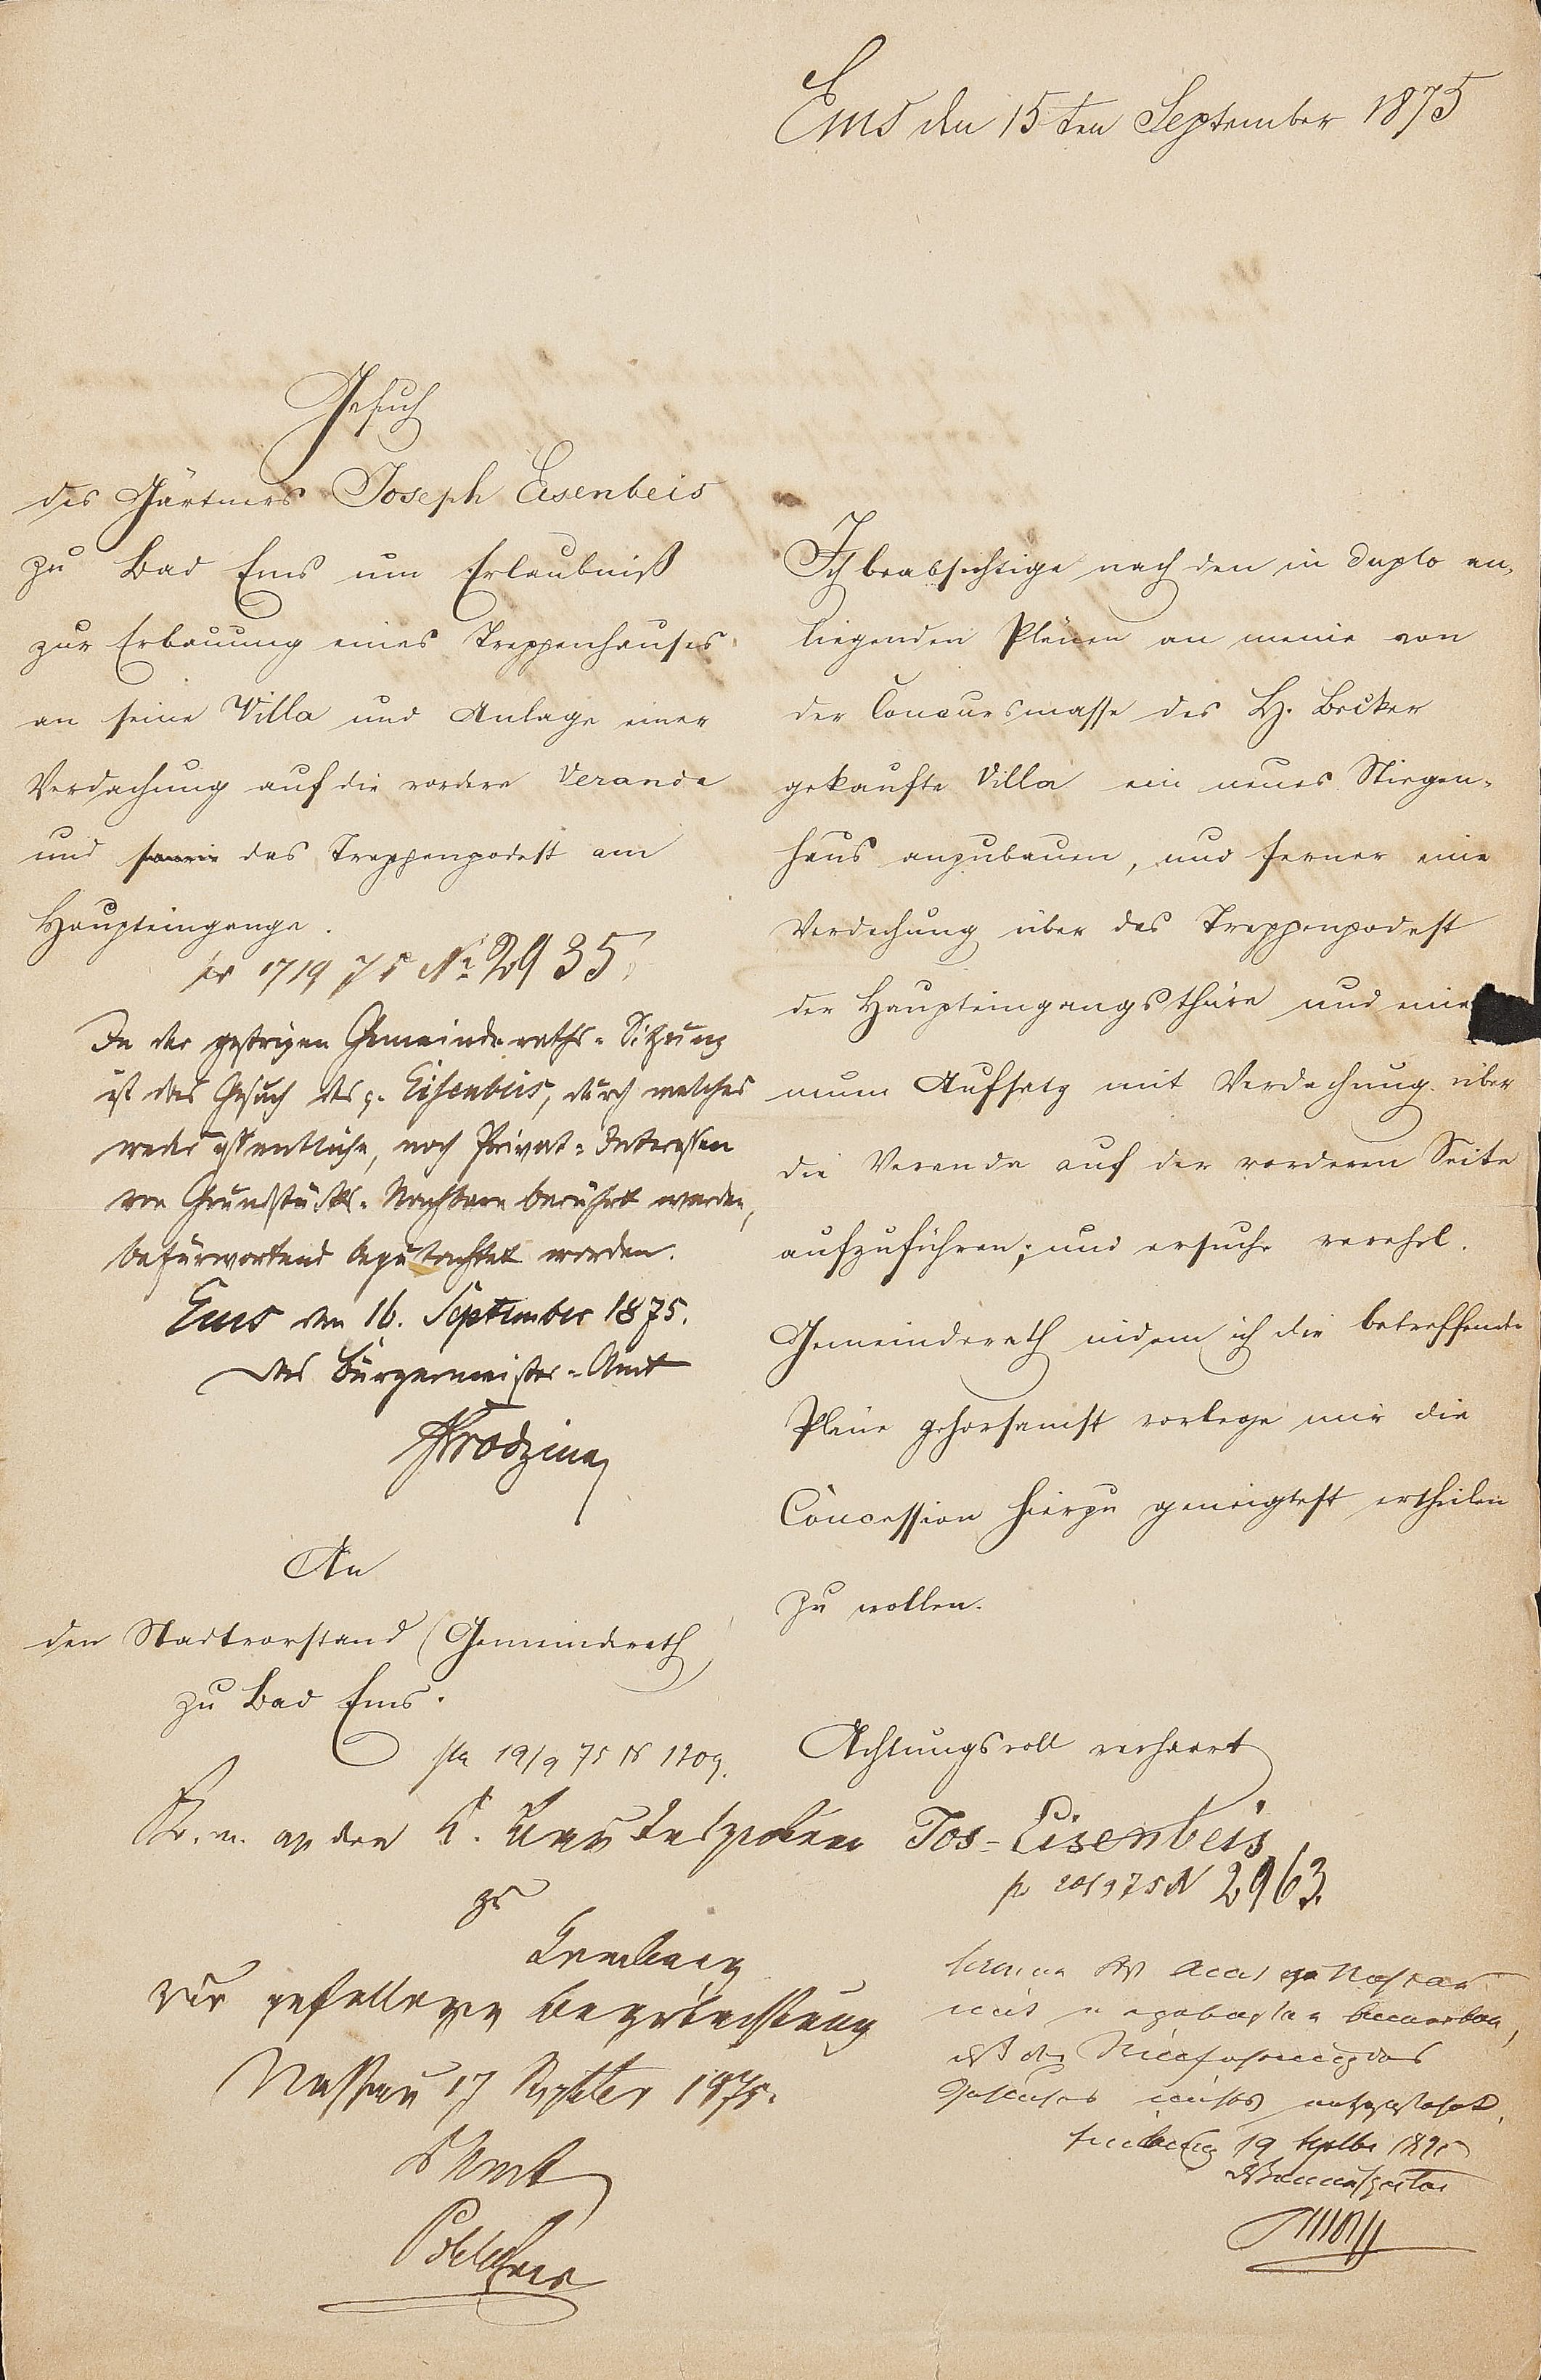 Ems den 15ten September 1875
Gesuch
des Gärtners Joseph Eisenbeis
zu Bad Ems um Erlaubniß
zur Erbauung eines Treppenhauses
an seine Villa und Anlage einer
Verdachung auf die vordere Veranda
und sowie das Treppenpodest am
Haupteingange.
pr 17/9 75 No 2935.
In der gestrigen Gemeinderaths-Sitzung
ist das Gesuch des p. Eisenbeis, durch welches
weder öffentliche, noch Privat-Interessen
von Grundstücks-Nachbarn berührt werden,
befürwortend begutachtet worden.
Ems den 16. September 1875.
Das Bürgermeister-Amt
An
den Stadtvorstand (Gemeinderath)
zu Bad Ems.
Ich beabsichtige nach den in duplo an-
liegenden Plänen an meine von
der Concursmasse des H. Becker
gekaufte Villa ein neues Stiegen-
haus anzubauen, und ferner eine
Verdachung über das Treppenpodest
der Haupteingangsthüre und eine
neuen Aufsatz mit Verdachung über
die Veranda auf der vorderen Seite
aufzuführen; und ersuche verehrl.
Gemeinderath indem ich die betreffende
Pläne gehorsamst vorlege mir die
Concession hierzu geneigtest ertheilen
zu wollen.
Achtungsvoll verharrt
Jos. Eisenbeis
pr 20/9 75 N 2963.
19/9 75 N 1209.
B. m. an den H. Bauinspector
zu
Limburg
zur gefälligen Begutachtung
Nassau 17 Septber 1875.
K Amt
19 Septbr 1875